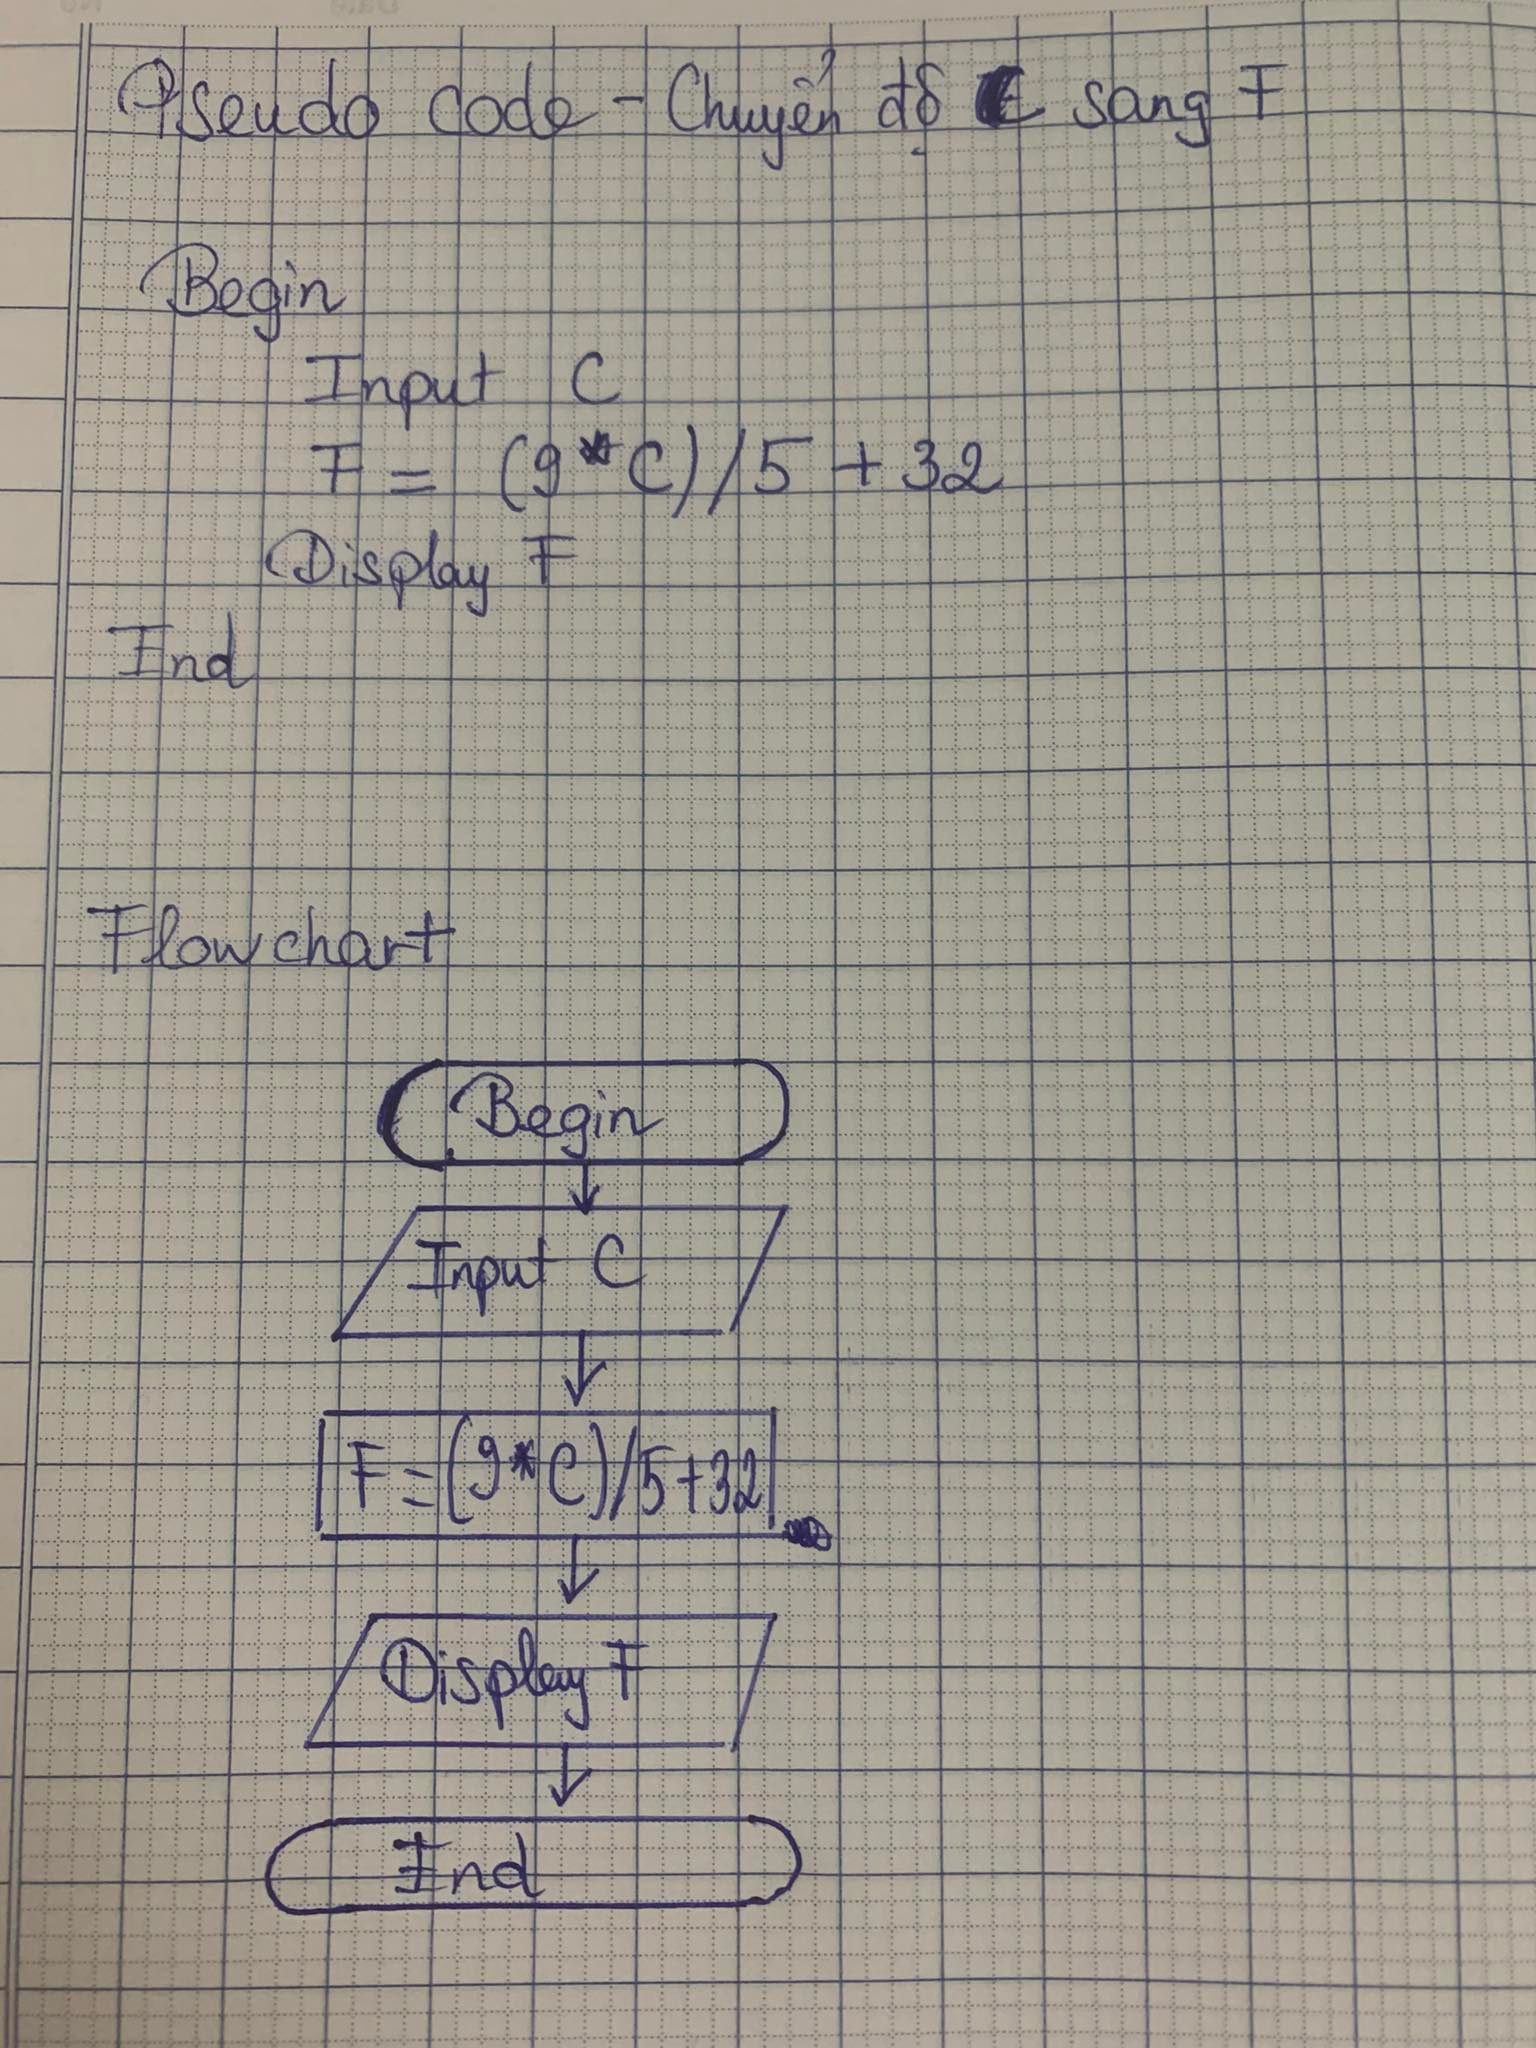 Pseudo code - Chuyển độ C sang F
Begin
Input C
F = (9*C)/5 + 32
Display F
End
Flowchart
Begin
Input C
F = (9*C)/5+32
Display F
End